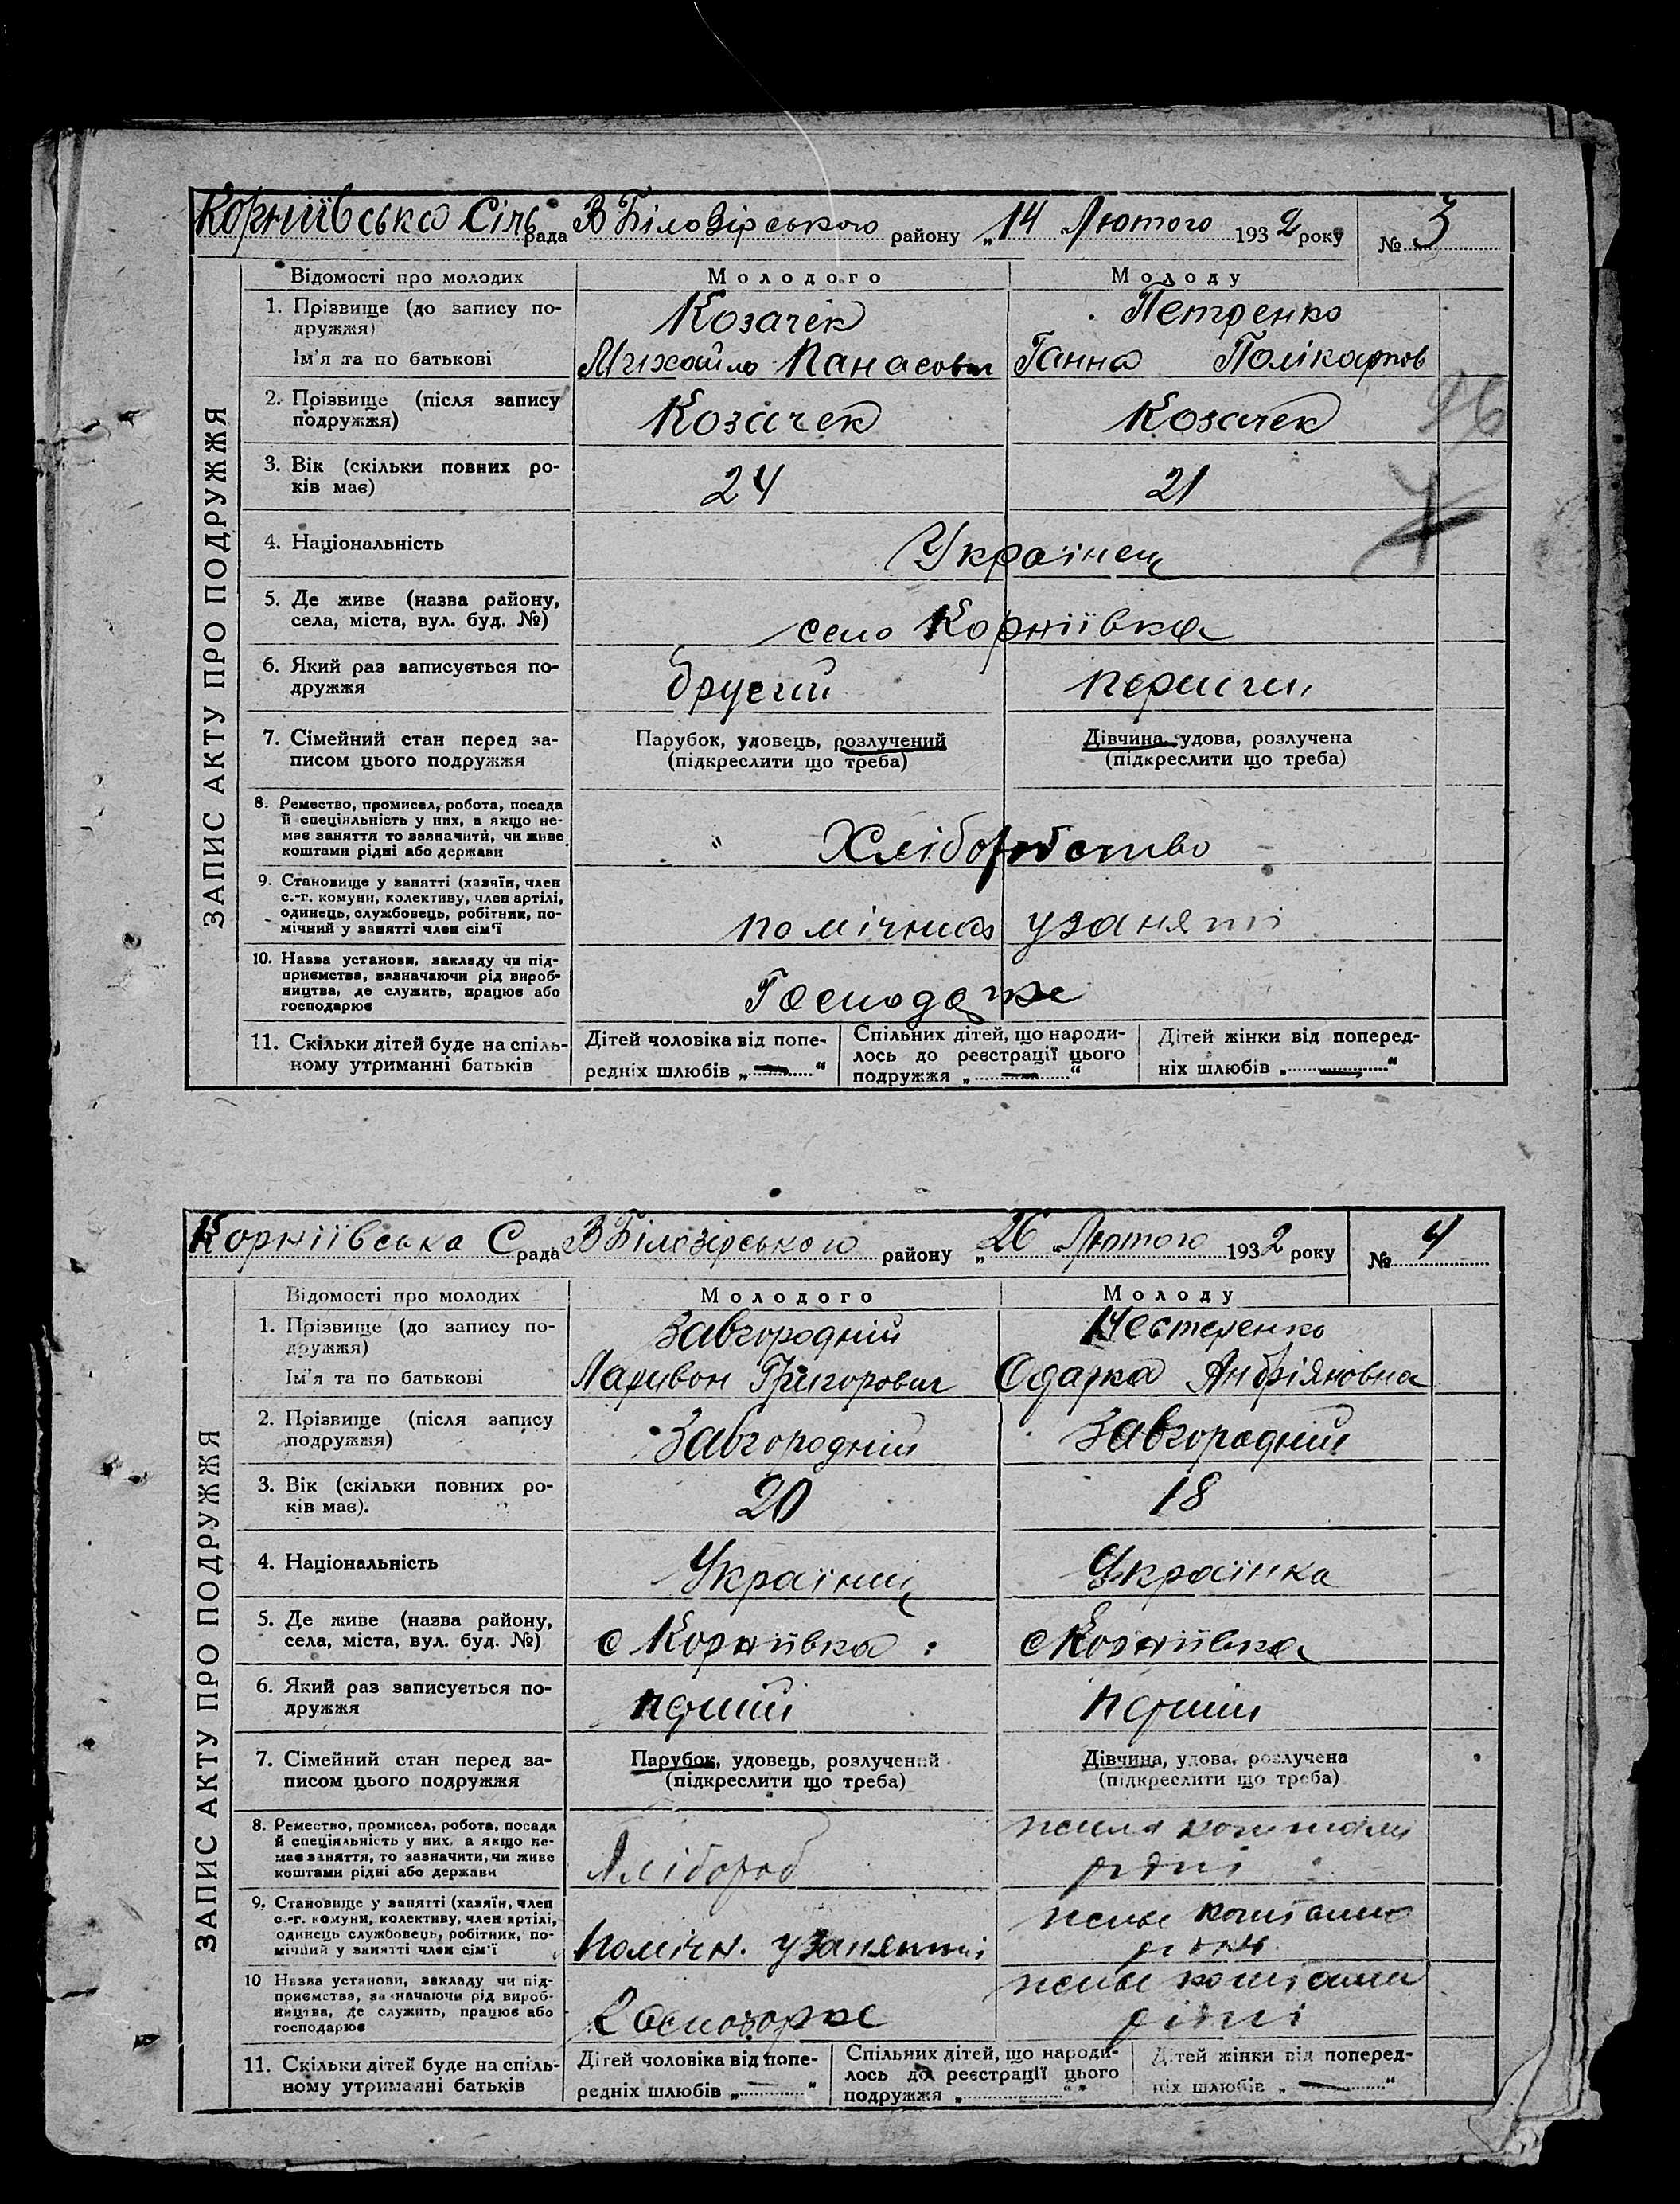 Корніївська Сіль рада В Білозірського району „14 Лютого 1932 року № 3
ЗАПИС АКТУ ПРО ПОДРУЖЖЯ
Відомості про молодих Молодого Молоду
1. Прізвище (до запису по- Козачек Петренко
дружжя)
Ім'я та по батькові Михайло Панасович Ганна Полікарпов
2. Прізвище (після запису Козачек Козачек
подружжя)
96
3. Вік (скільки повних ро- 24 21
ків має)
4. Національність Українец
5. Де живе (назва району, село Корніївка
села, міста, вул. буд. №)
6. Який раз записується по- другий перший
дружжя
7. Сімейний стан перед за- Парубок, удовець, розлучений Дівчина, удова, розлучена
писом цього подружжя (підкреслити що треба) (підкреслити що треба)
8. Ремество, промисел, робота, посада
й спеціяльність у них, а якщо не-
має заняття то зазначити, чи живе Хліборобство
коштами рідні або держави
9. Становище у занятті (хазяїн, член
с.-г. комуни, колективу, член артілі,
одинець, службовець, робітник, по- помічник узаняті
мічний у занятті член сім'ї
10. Назва установи, закладу чи під-
приємства, зазначаючи рід вироб-
ництва, де служить, працює або Господарже
господарює
11. Скільки дітей буде на спіль- Дітей чоловіка від попе- Спільних дітей, що народи- Дітей жінки від поперед-
ному утриманні батьків редніх шлюбів „ — “ лось до реєстрації цього ніх шлюбів „ — “
подружжя „ — “
Корніївська С рада В Білозірського району „26 Лютого 1932 року № 4
ЗАПИС АКТУ ПРО ПОДРУЖЖЯ
Відомості про молодих Молодого Молоду
1. Прізвище (до запису по- Завгородній Нестеренко
дружжя)
Ім'я та по батькові Ларивон Григорович Одарка Андріяновна
2. Прізвище (після запису Завгородній Завгородній
подружжя)
3. Вік (скільки повних ро- 20 18
ків має).
4. Національність Україниц Українка
5. Де живе (назва району, с Корніївка с Корніївка
села, міста, вул. буд. №)
6. Який раз записується по- перший перший
дружжя
7. Сімейний стан перед за- Парубок, удовець, розлучений Дівчина, удова, розлучена
писом цього подружжя (підкреслити що треба) (підкреслити що треба)
8. Ремество, промисел, робота, посада коштами
й спеціяльність у них, а якщо не-
має заняття, то зазначити, чи живе Хлібороб рідні
коштами рідні або держави
9. Становище у занятті (хазяїн, член
с.-г. комуни, колективу, член артілі, живе коштами
одинець службовець, робітник, по- помічн. узанятті рідні
мічний у занятті член сім'ї
10 Назва установи, закладу чи під- живе коштами
приємства, зазначаючи рід вироб-
ництва, де служить, працює або Господарже рідні
господарює
11. Скільки дітей буде на спіль- Дітей чоловіка від попе- Спільних дітей, що народи- Дітей жінки від поперед-
ному утриманні батьків редніх шлюбів „ — “ лось до реєстрації цього ніх шлюбів „ — “
подружжя „ “